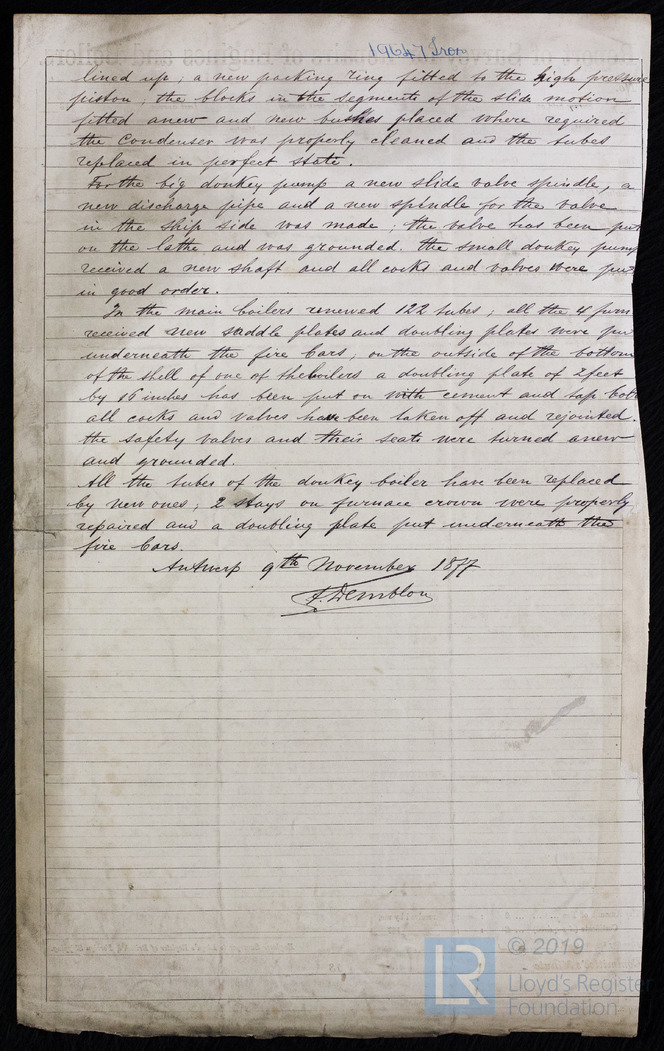 19647 Iron
lined up; a new packing ring fitted to the high pressure
piston; the blocks in the segments of the slide motion
fitted anew and new bushes placed where required
the condenser was properly cleaned and the tubes
replaced in perfect state.
For the big donkey pump a new slide valve spindle, a
new discharge pipe and a new spindle for the valve
in the ship side was made; the valve has been put
on the lathe and was grounded. the small donkey pump
received a new shaft and all cocks and valves were put
in good order.
In the main boilers renewed 122 tubes; all the 4 furn
received new saddle plates and doubling plates were pu
underneath the fire bars; on the outside of the bottom
of the shell of one of the boilers a doubling plate of 2 feet
by 16 inches has been put on with cement and tap bolt
all cocks and valves have been taken off and rejointed.
the safety valves and their seats were turned anew
and grounded.
All the tubes of the donkey boiler have been replaced
by new ones; 2 stays on furnace crown were properly
repaired and a doubling plate put underneath the
fire bars.
Antwerp 9th November 1877
F. Demblon
LR © 2019
Lloyd's Register
Foundation